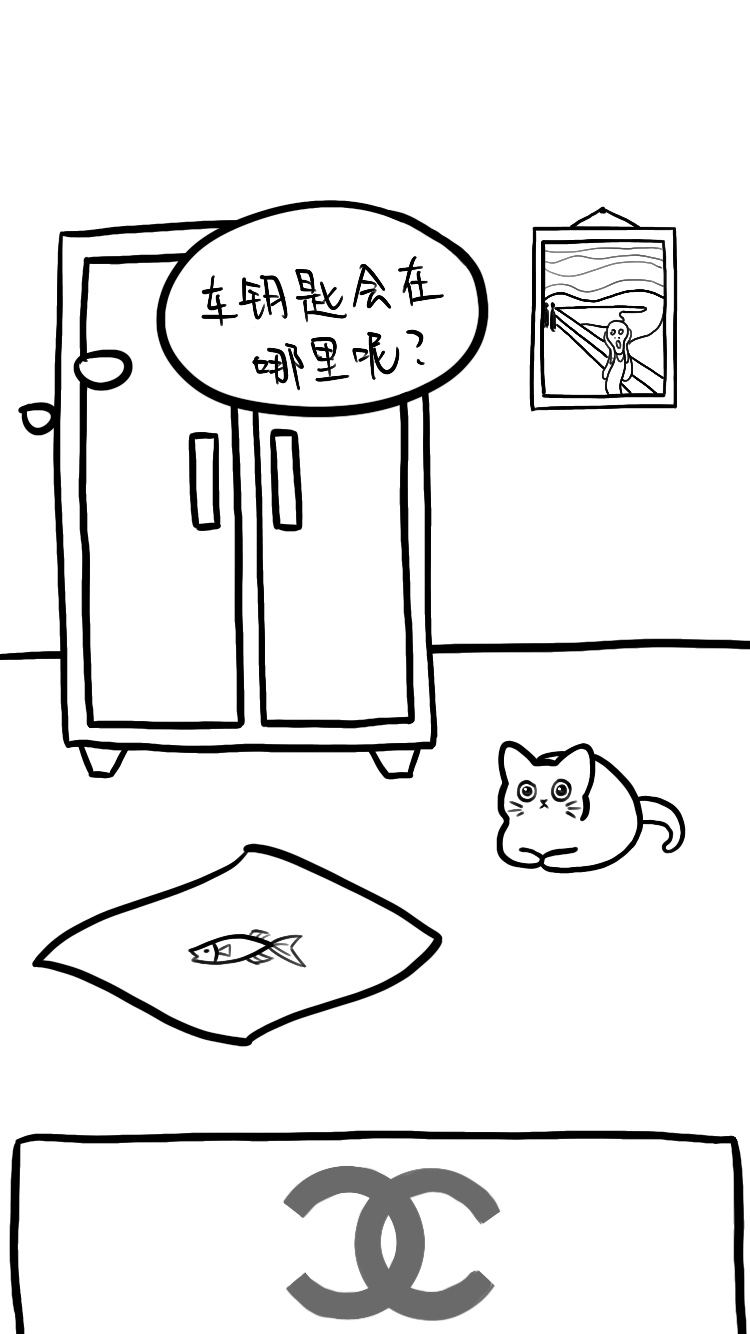 车钥匙会在
哪里呢？